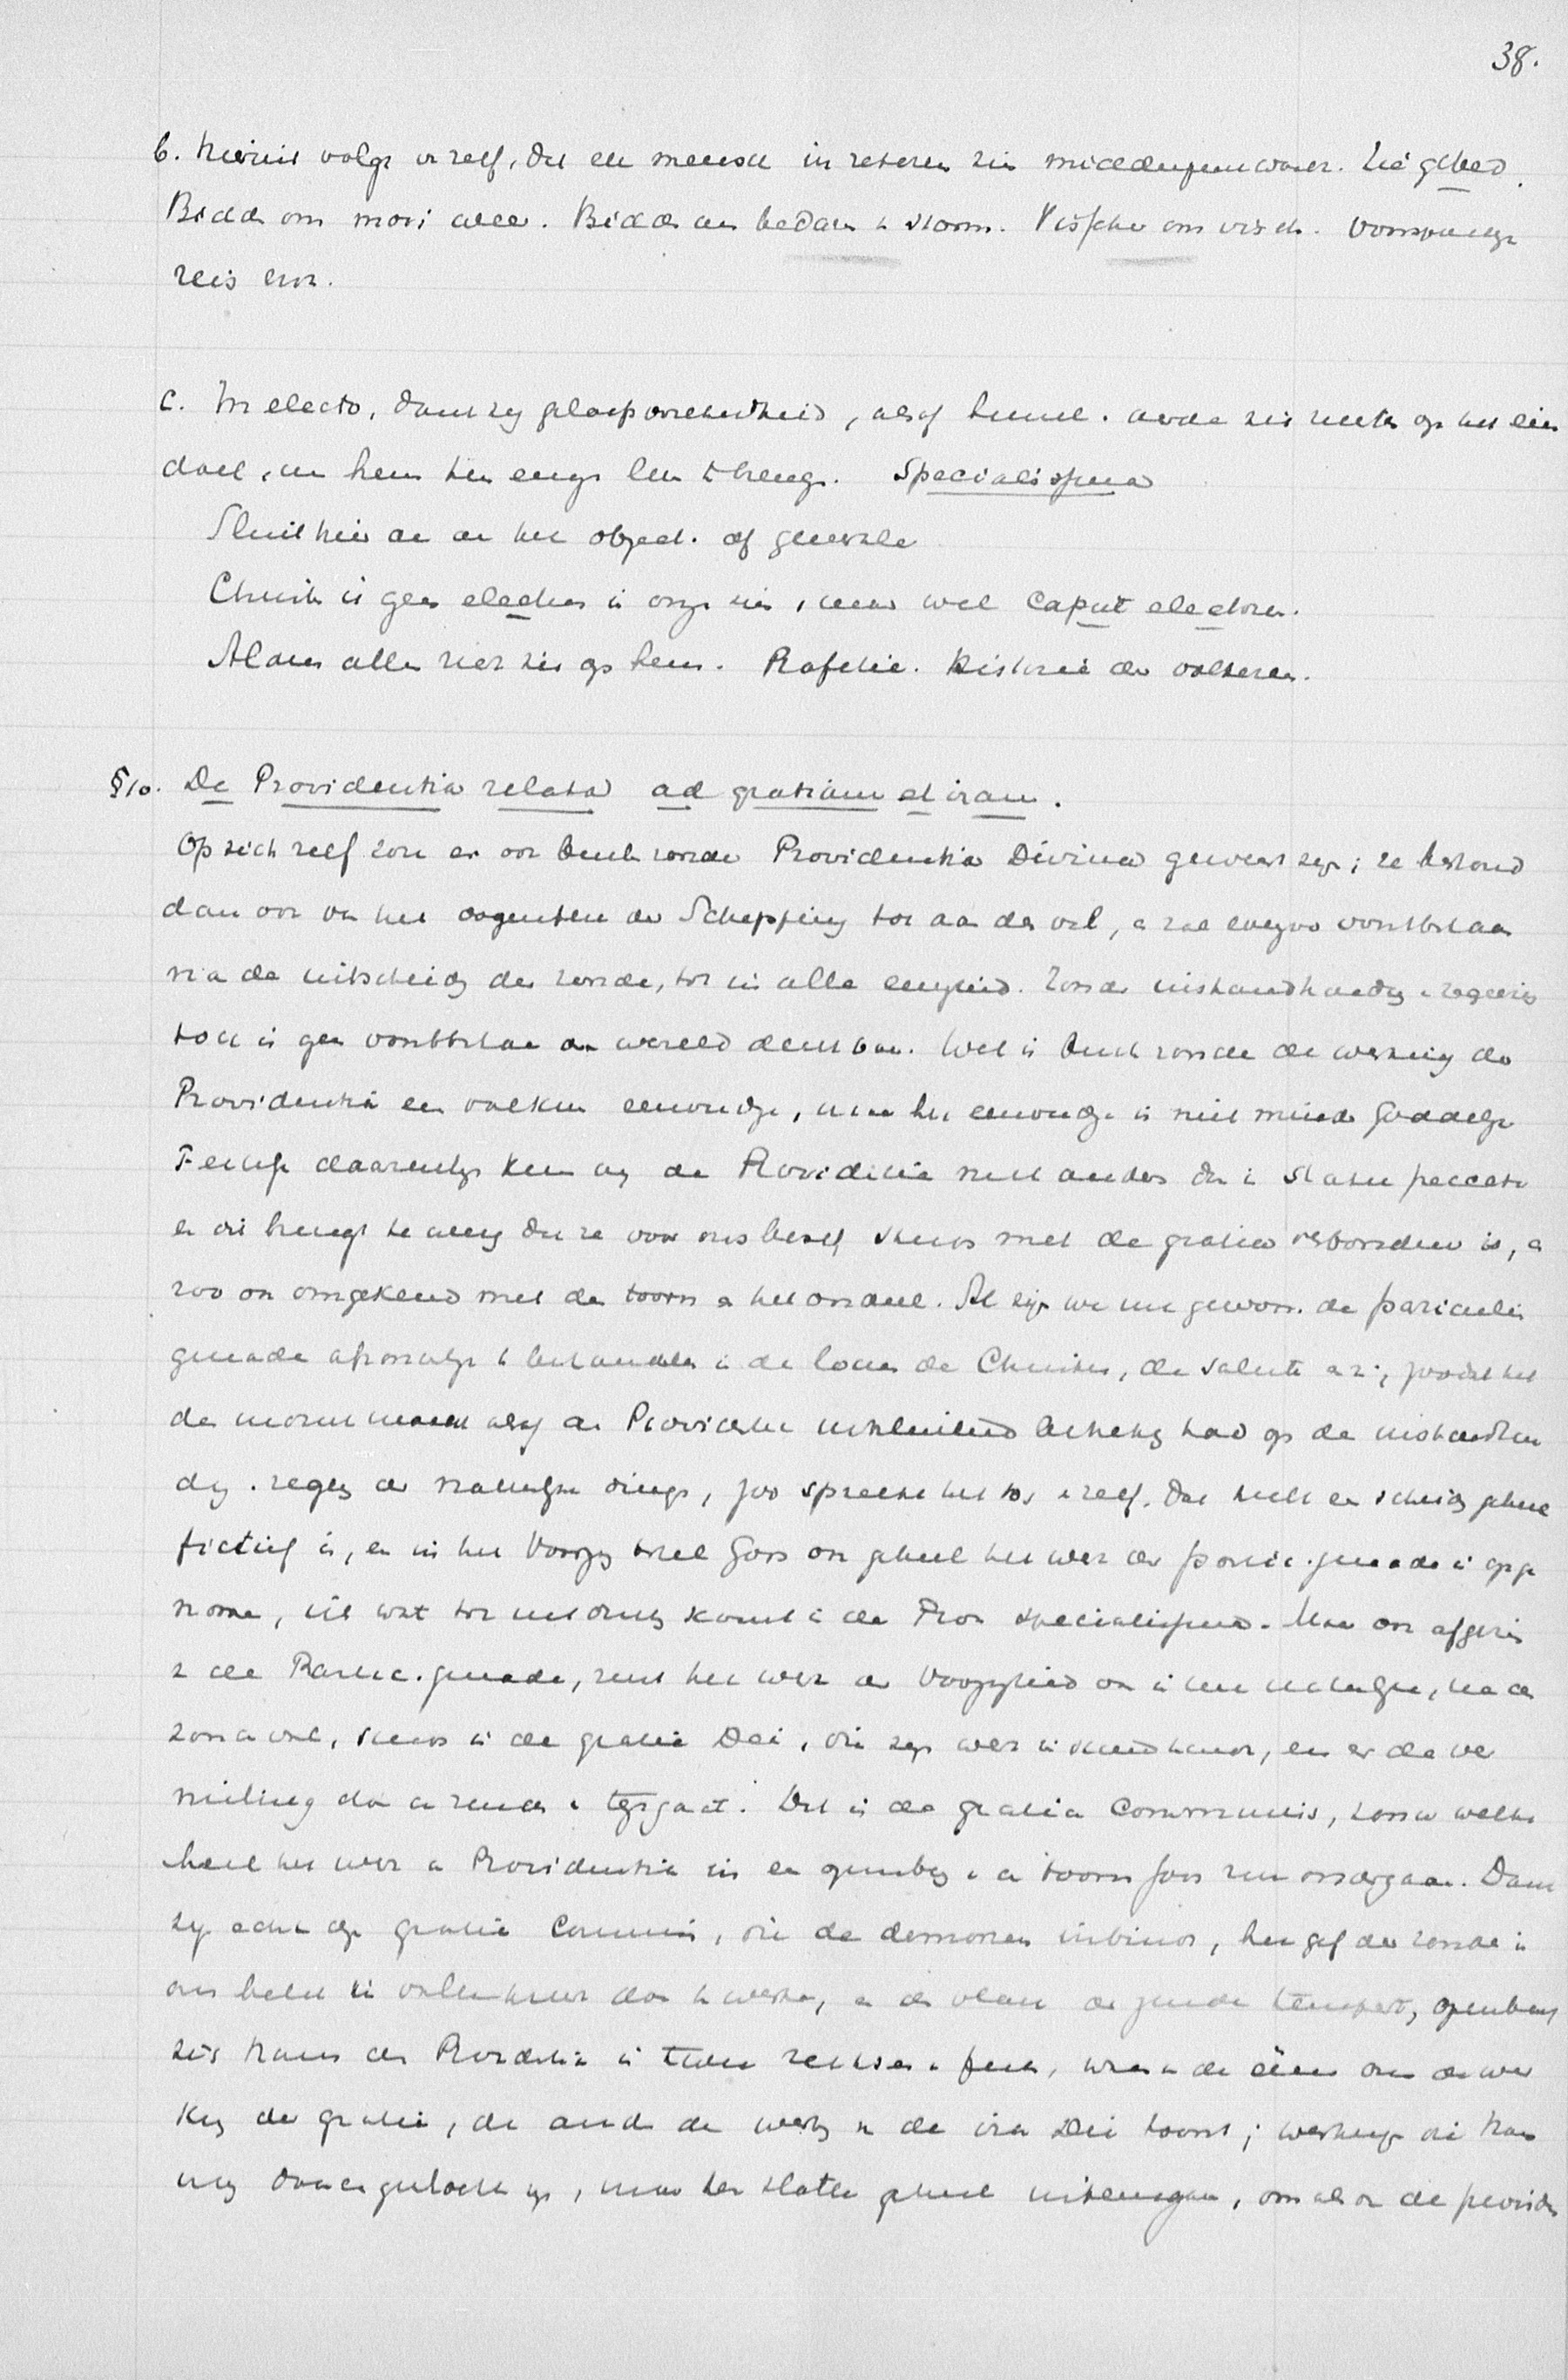 38.
b. hieruit volgt v zelf, dat elk mensch in zekeren zin middenpunt wordt. Zie gebed.
Bidden om mooi weer. Bidden om bedaren v storm. Visscher om visch. Voorspoedige
reis enz.
c. In electo, daar zijn geloofs zekerheid, alsof hemel . aarde zich richten op het eind
doel, om hem ten eeuwigen leven te brengen. Specialissima
Sluit hier aan aan het object. of generale
Christus is geen electus in onze zin, maar wel Caput electorum.
Adam alles ziet zich op hem. Profetie. Historie der volkeren.
§10. De Providentia relata ad gratiam et iram.
Op zich zelf zou er ook buiten zonde Providentia Divina geweest zijn; ze bestond
dan ook van het oogenblik der Schepping tot aan den val, en zal evenzoo voortbestaan
na de uitscheiding der zonde, tot in alle eeuwigheid. Zonder instandhouding en regeering
toch is geen voortbestaan der wereld denkbaar. Wel is buiten zonde de werking der
Providentia een volkomen eenvoudige, maar het eenvoudige is niet minder Goddelijk
Feitelijk daarentegen kennen wij de Providentia niet anders dan in statu peccati
en dit brengt te weeg dat ze voor ons besef steeds met de gratia verbonden is, en
zoo ook omgekeerd met den toorn en het oordeel. Al zijn we nu gewoon de particuliere
genade afzonderlijk te behandelen in de locus de Christo, de Salute enz.; zoodat het
den indruk maakt alsof de Providentia uitsluitend betrekking had op de instandhou
ding . regeling der natuurlijke dingen, zoo spreekt het toch v zelf, dat zulk een scheiding geheel
fictief is, en in het Voorzienig bestel Gods ook geheel het werk der partic. genade is opge
nomen, iets wat tot uitdrukking komt in de Prov specialissima. Maar ook afgezien
v de Partic. genade, rust het werk der Voorzienigheid ook in het natuurlijke, na den
zondeval, steeds in de gratia Dei, die zijn werk in stand houdt, en er de ver
nieling door de zonde v tegengaat. Dit is de gratia Communis, zonder welke
heel het werk der Providentia in een openbaring v den toorn Gods zou ondergaan. Daar
zij echter de gratia Communis, die de demonen inbindt, het gif der zonde in
ons belet in volle kracht door te werken, en den vloek der zonde tempert, openbaart
zich thans de Providentia in twee reeksen v feiten, waarvan de ééne ons de wer
king der gratia, de andere de werking v de ira Dei toont; werkingen die thans
nog dooreengevlochten zijn, maar ten slotte geheel uiteengaan, om als in de periode